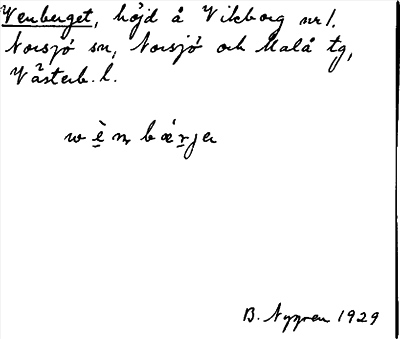 Venberget, höjd å Vikborg nr 1.
Norsjö sn, Norsjö och Malå tg,
Västerb. l.
w è n bǽrjer
B. Nygren 1929